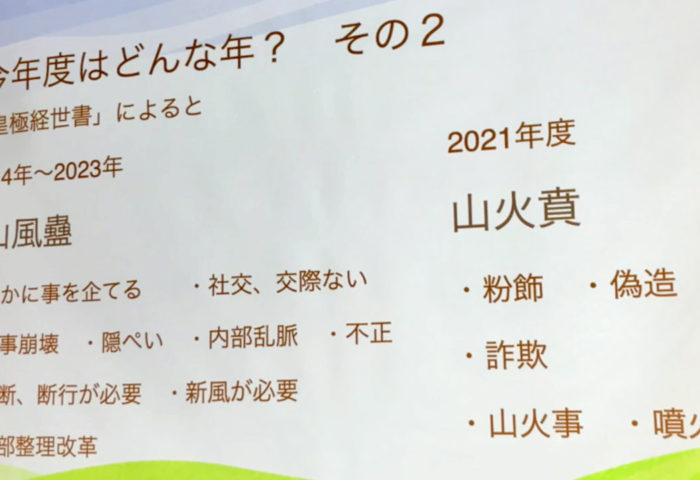 今年度はどんな年？　その２
皇極経世書」によると
4年～2023年
山風蠱
かに事を企てる　・社交、交際ない
事崩壊　・隠ぺい　・内部乱脈　・不正
断、断行が必要　・新風が必要
部整理改革
2021年度
山火賁
・粉飾　・偽造
・詐欺
・山火事　・噴火